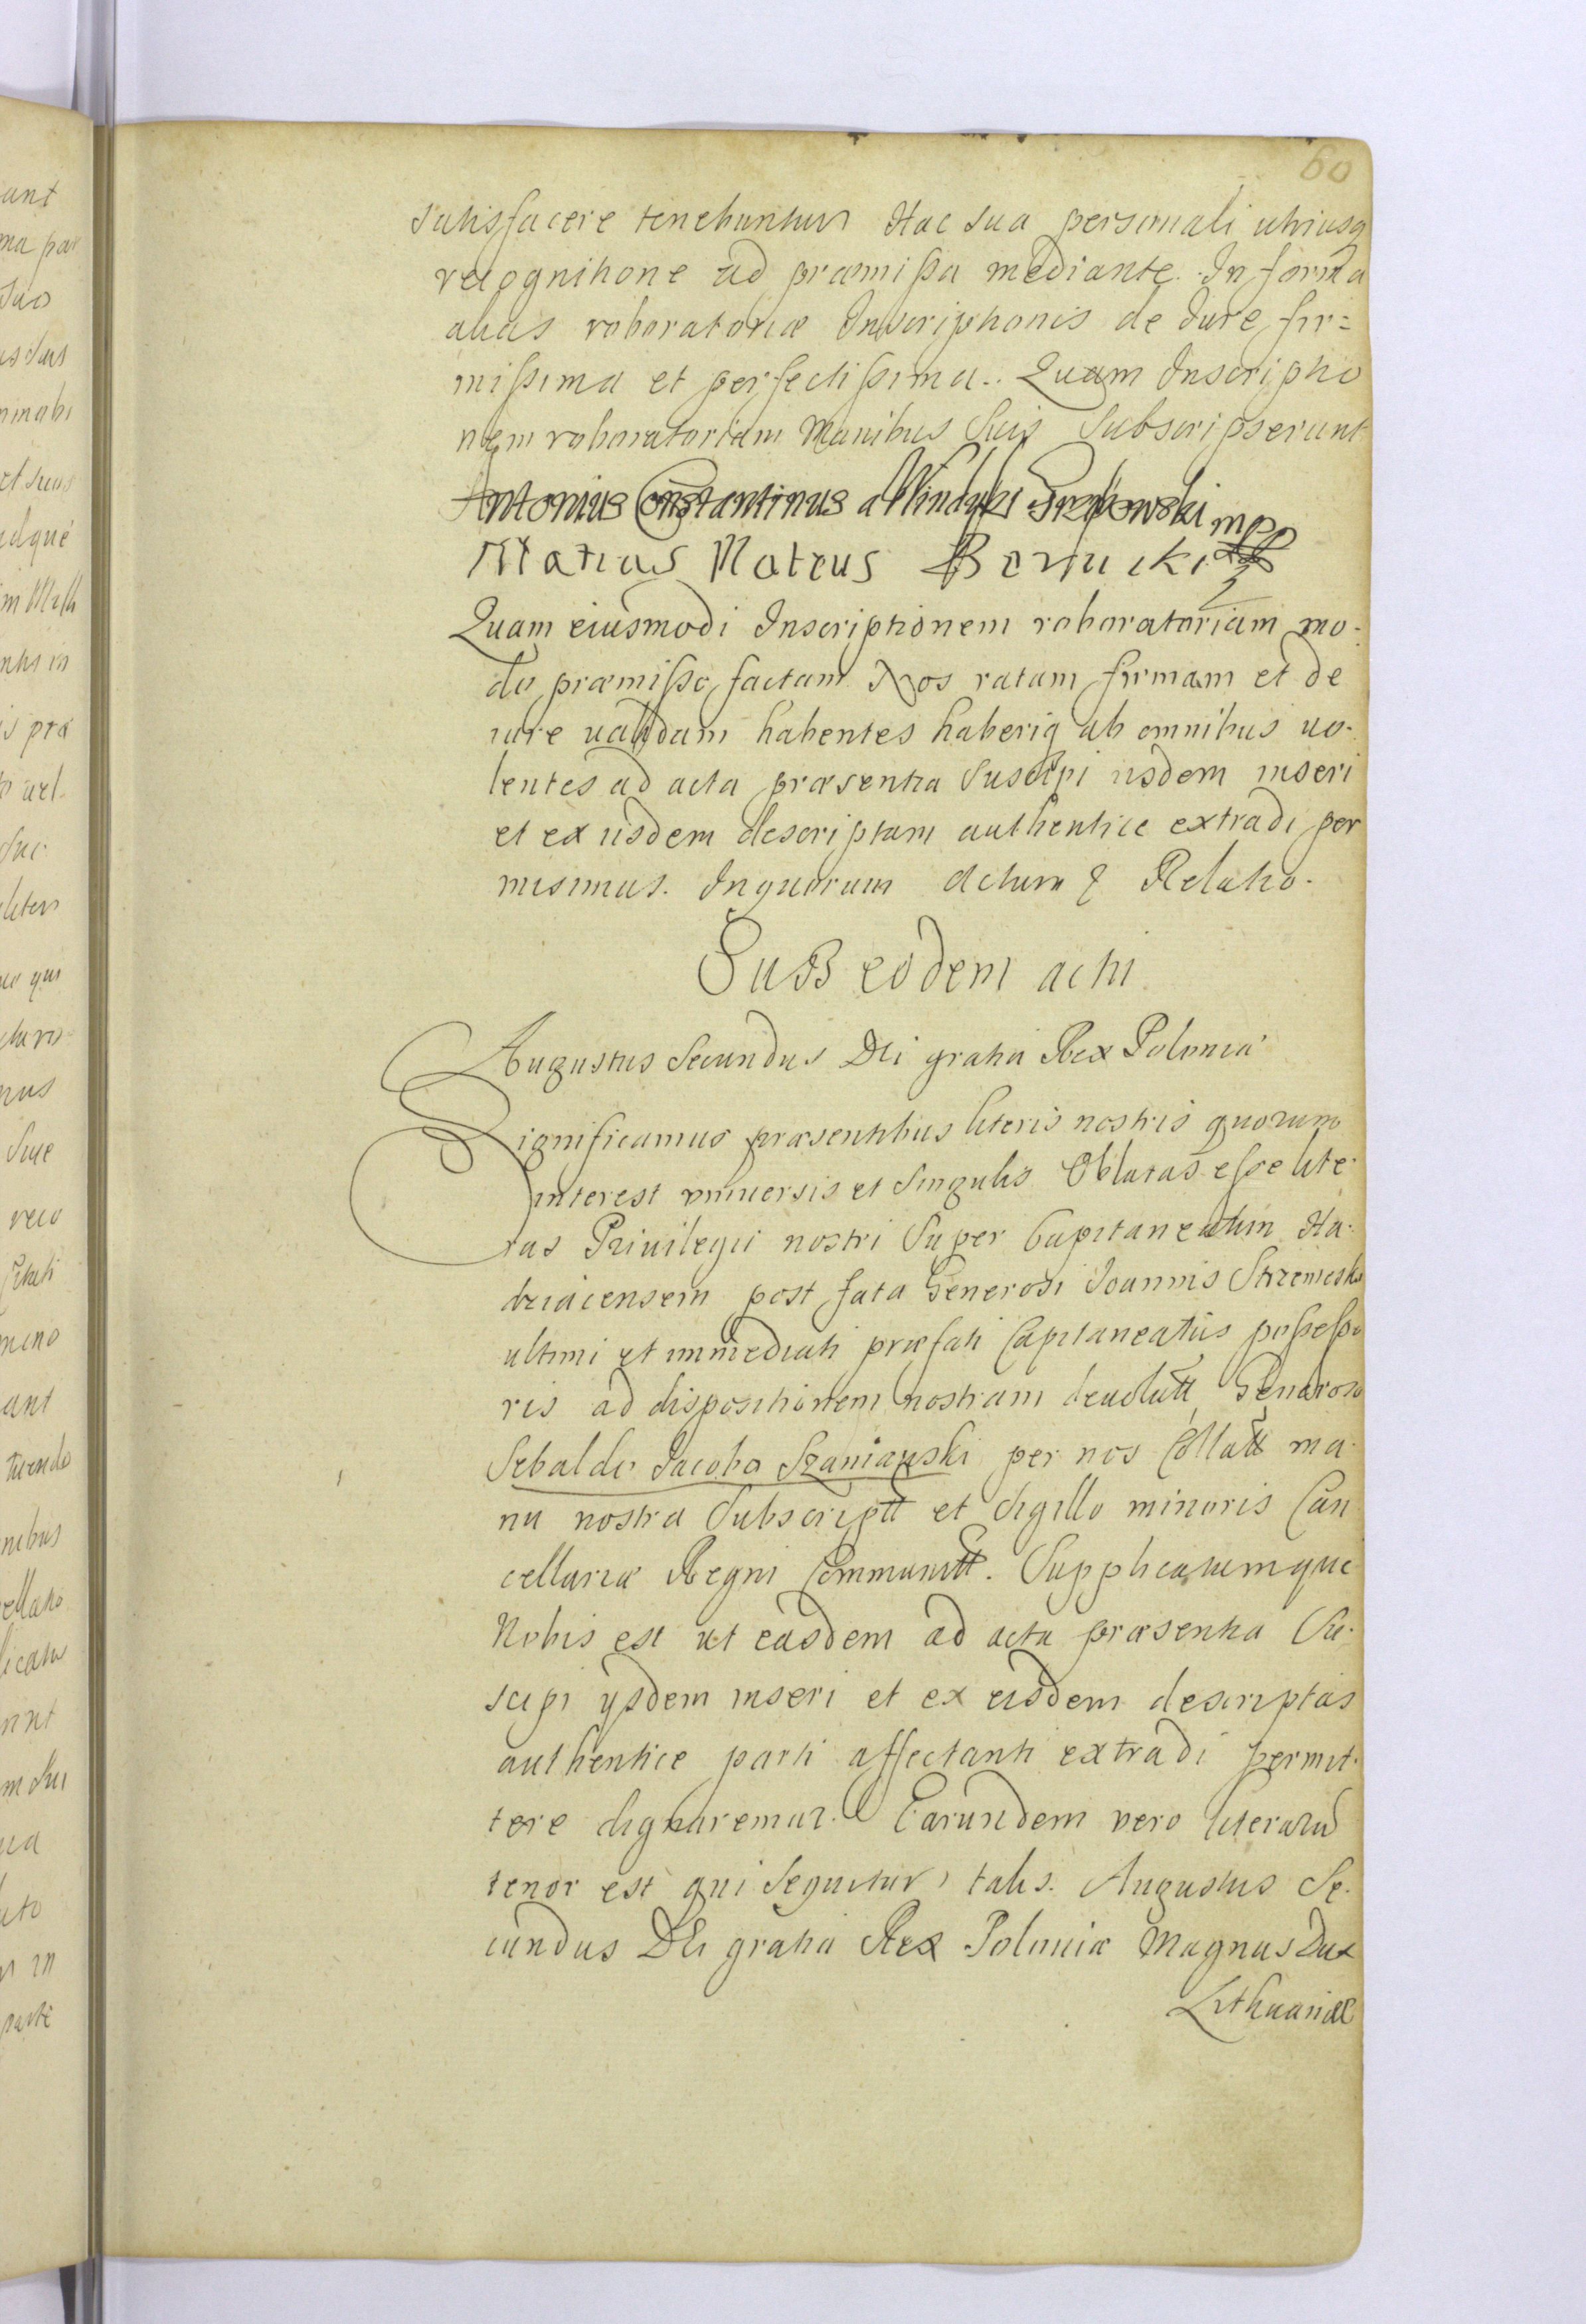 60
satisfacere tenebuntur Hac sua personali utriusq
recognitione ad præmissa mediante. In forma
alias roboratoriæ Inscriptionis de Jure fir=
missima et perfectissima.. Quam Inscriptio
nem roboratoriam Manibus Suis Subscripserunt
Antonius Constantinus a Mp
Matias Mateus
Quam eiusmodi Inscriptionem roboratoriam mo-
do præmisso factam Nos ratam firmam et de
iure validam habentes haberiq ab omnibus uo-
lentes ad acta præsentia Suscipi iisdem inseri
et ex iisdem descriptam authentice extradi per
misimus. Inquorum Actum & Relatio.
SuB eodem actu
Augustus Secundus Dei gratia Rex Poloniæ
Significamus præsentibus literis nostris quorum
interest vniuersis et Singulis Oblatas esse lite-
ras Priuilegii nostri Super Capitaneatum Ha-
dziacensem post fata Generosi Joannis
ultimi et immediati præfati Capitaneatus possesso
ris ad dispositionem nostram deuolutt Generoso
Sebaldo Jacobo Szaniawski per nos Collatt ma-
nu nostra Subscriptt et Sigillo minoris Can
cellariæ Regni Communitt. Supplicatumque
Nobis est ut easdem ad acta præsentia Su-
scipi ysdem inseri et ex eisdem descriptas
authentice parti affectanti extradi permit-
tere dignaremur. Earundem vero literarū
tenor est qui Sequitur talis. Augustus Se-
cundus DEi gratia Rex Poloniæ Magnus Dux
Lithuaniæ